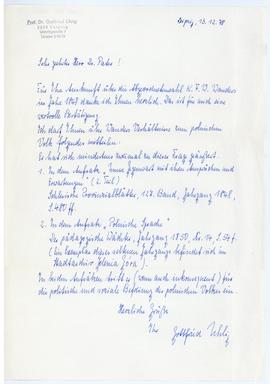 Prof. Dr. Gottfried Uhlig
7030 Leipzig
Leipzig, 13.12.78
Sehr geehrter Herr Dr. !
Für Ihre Auskunft über die Abgeordnetenwahl K. F. W. Wanders
im Jahre 1848 danke ich Ihnen herzlich. Das ist für mich eine
wertvolle Bestätigung.
Ich darf Ihnen über Wanders Verhältnis zum polnischen
Volk folgendes mitteilen.
Es hat sich mindestens zweimal zu dieser Frage geäußert.
1. In dem Aufsatz „ Gegenwart mit ihren Ansprüchen und
Erwartungen" (2. Teil)
Schlesische Provinzialblätter, 127. Band, Jahrgang 1848,
S. 480 ff
2. In dem Aufsatz „Polnische Sprache"
Der pädagogische Wächter, Jahrgang 1850, Nr. 14, S. 54 f.
(Ein Exemplar dieses seltenen Jahrgangs befindet sich im
Stadtarchiv Jelenia Gora.)
In beiden Aufsätzen tritt er (wenn auch inkonsequent) für
die politische und soziale Befreiung des polnischen Volkes ein.
Herzliche Grüße
Ihr Gottfried Uhlig